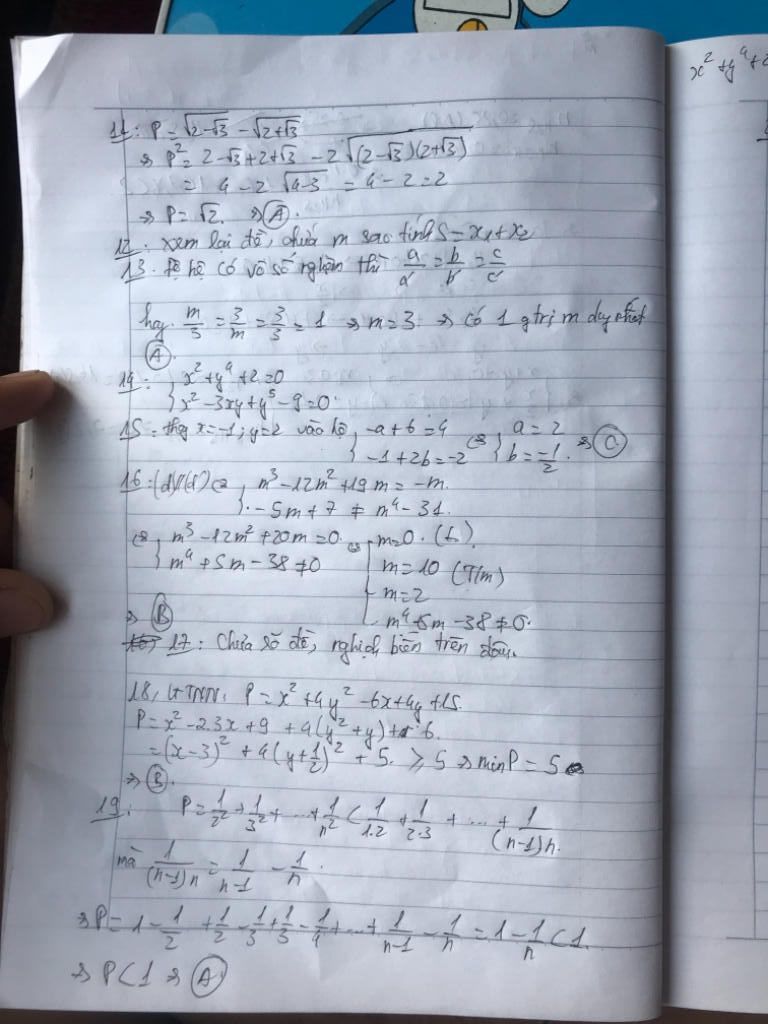 x² + y⁴ + 2
11: P = √(2-√3) - √(2+√3)
⇒ P² = 2-√3+2+√3 - 2√((2-√3)(2+√3))
= 4 - 2√(4-3) = 4 - 2 = 2
⇒ P = √2. ⇒ Ⓐ.
12: Xem lại đề, chứa m sao tính S = x₁ + x₂
13. Để hệ có vô số nghiệm thì a/a' = b/b' = c/c'
hay m/3 = 3/m = 3/3 = 1 ⇒ m = 3 ⇒ có 1 gtrị m duy nhất
Ⓐ.
14: { x² + y⁴ + 2 = 0
{ x² - 3xy + y⁵ - 9 = 0.
15: thay x = -1; y = 2 vào hệ { -a + 6 = 4 ⇔ { a = 2 ⇒ Ⓒ
{ -1 + 2b = -2 { b = -1/2.
16: (d)//(d') ⇔ { m³ - 12m² + 19m = -m.
{ -5m + 7 ≠ m⁴ - 31.
⇔ { m³ - 12m² + 20m = 0. ⇔ m = 0. (L)
{ m⁴ + 5m - 38 ≠ 0 m = 10 (T/m)
m = 2
m⁴ + 5m - 38 ≠ 0.
⇒ Ⓑ
17: Chưa rõ đề, nghịch biến trên đâu.
18, GTNN: P = x² + 4y² - 6x + 4y + 15.
P = x² - 2.3x + 9 + 4(y² + y) + 6.
= (x-3)² + 4(y + 1/2)² + 5. ≥ 5 ⇒ minP = 5
⇒ Ⓑ.
19: P = 1/2² + 1/3² + ... + 1/n² < 1/1.2 + 1/2.3 + ... + 1/(n-1)n.
mà 1/(n-1)n = 1/n-1 - 1/n.
⇒ P = 1 - 1/2 + 1/2 - 1/3 + 1/3 - 1/4 + ... + 1/n-1 - 1/n = 1 - 1/n < 1.
⇒ P < 1 ⇒ Ⓐ